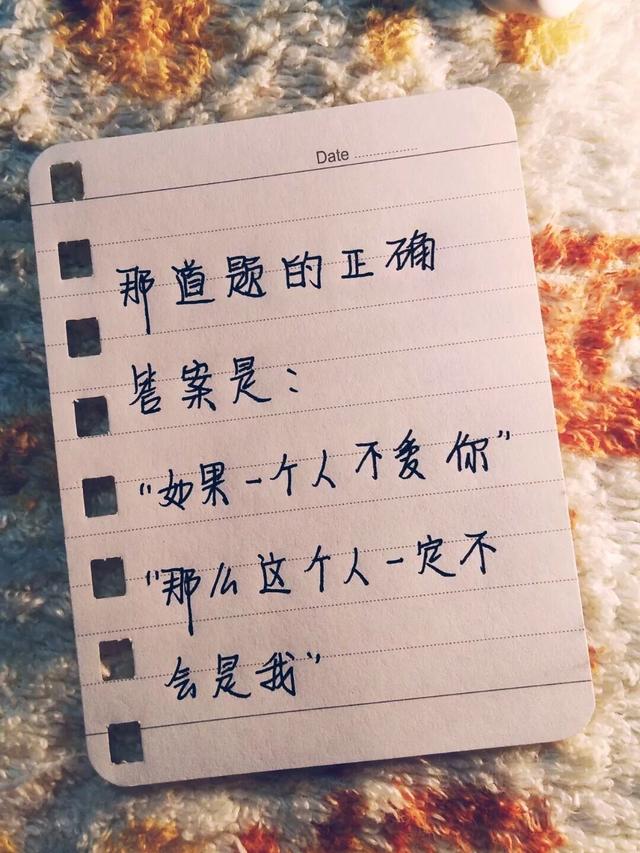 Date
那道题的正确
答案是：
“如果一个人不爱你”
“那么这个人一定不
会是我”